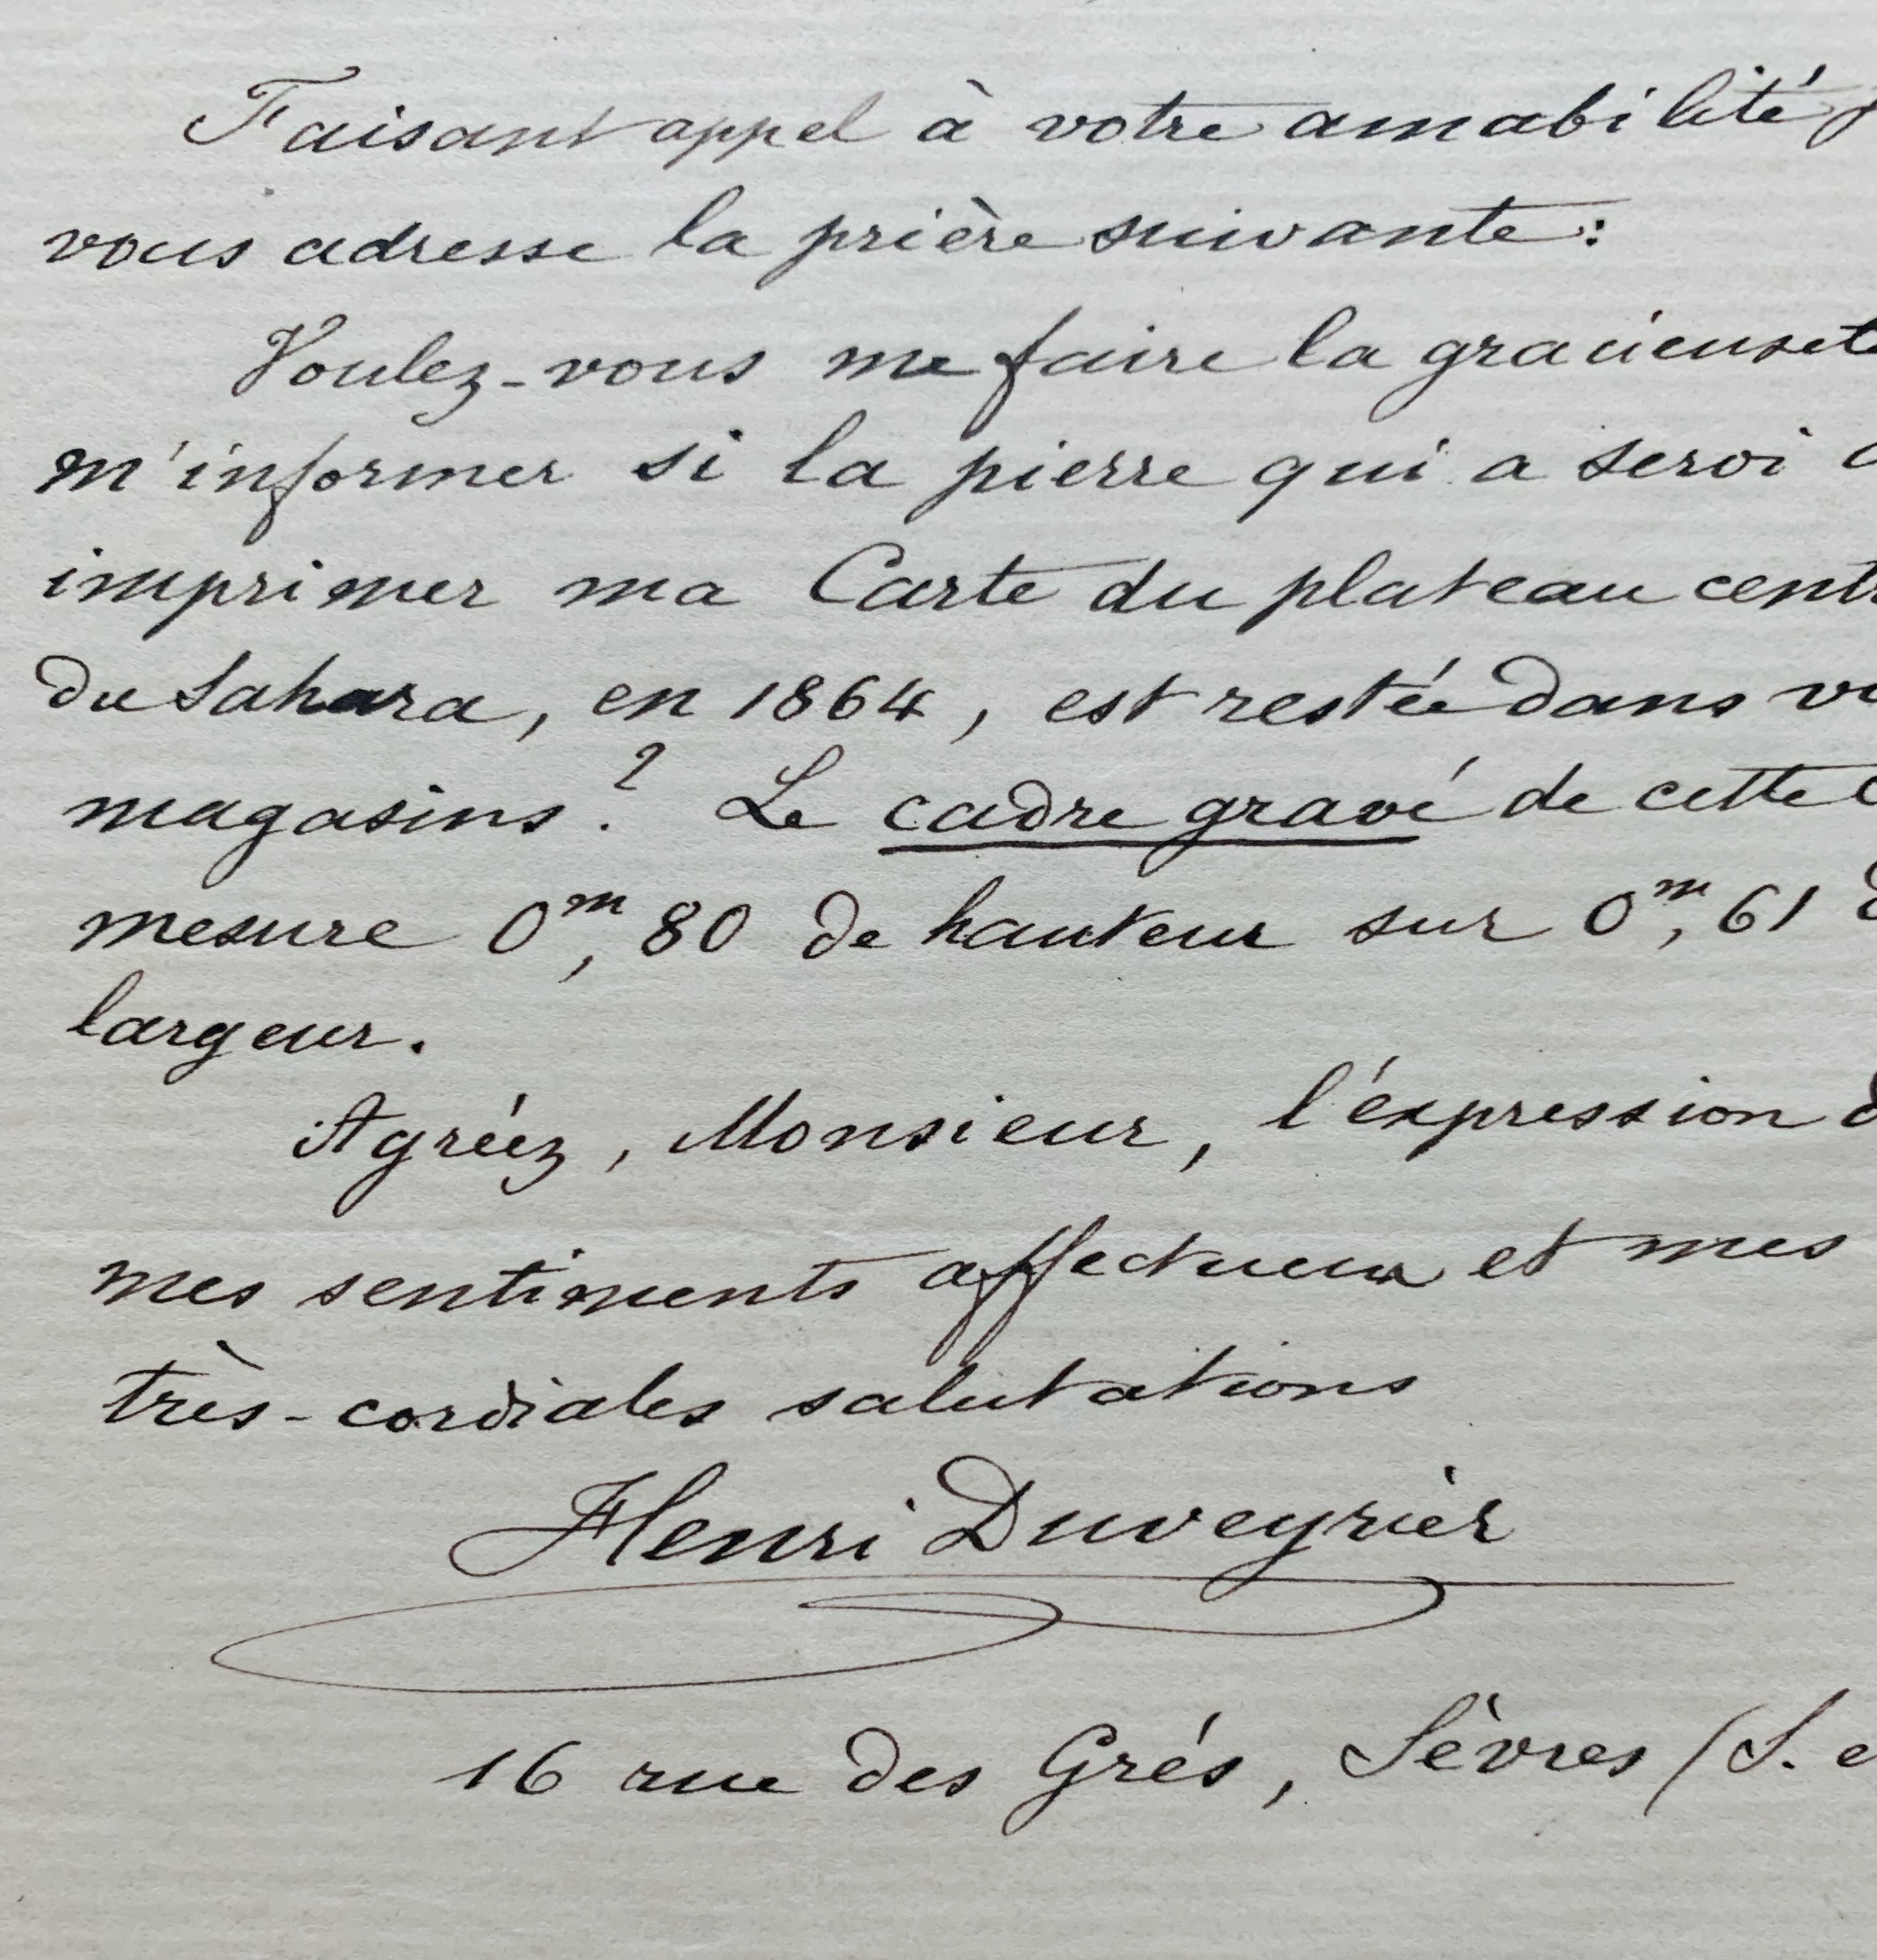 Faisant appel à votre amabilité j
vous adresse la prière suivante :
Voulez-vous me faire la gracieuseté
m'informer si la pierre qui a servi à
imprimer ma Carte du plateau cent
du Sahara, en 1864, est restée dans vo
magasins ? Le cadre gravé de cette c
mesure 0m,80 de hauteur sur 0m,61 d
largeur.
Agréez, Monsieur, l'expression d
mes sentiments affectueux et mes
très-cordiales salutations
Henri Duveyrier
16 rue des Grés, Sèvres (S. e